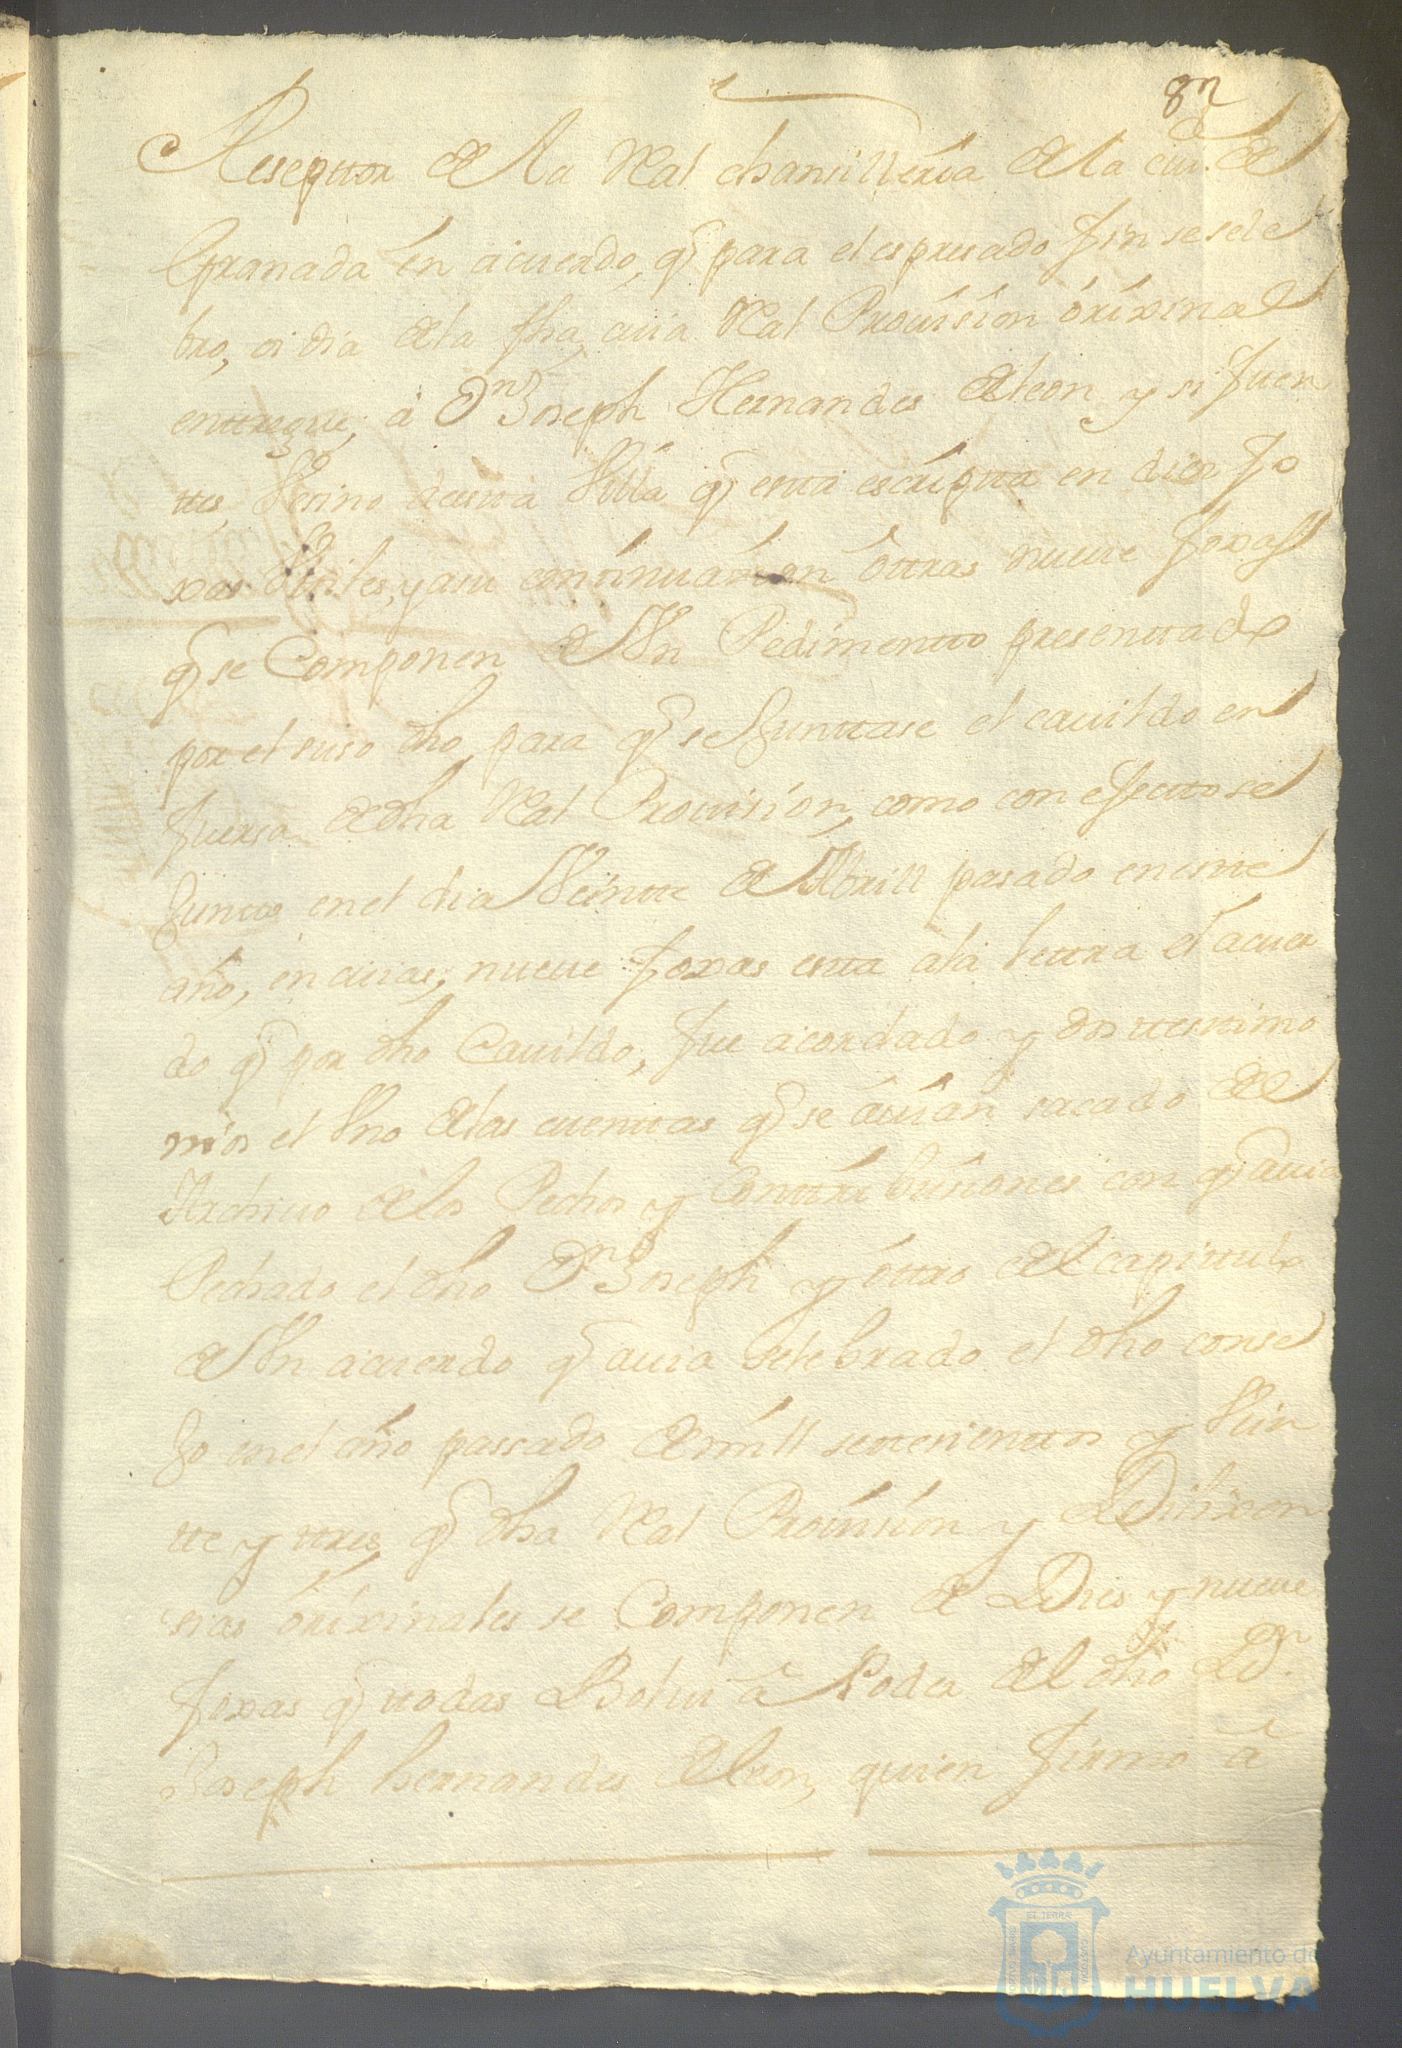 82
Reseptor de la Real chansillería de la ciu.d de
Granada en acuerdo, q̃ para el espresado fin se sele
bro, oi dia de la fha, cuia Real Provísíon oríxinal
enttregue, a Dn Joseph Hernandes de leon y si fuen
ttes, Vesino de esta Villa q̃ esta escriptta en diez fo
xas Vttiles, y a su conttinuasion ottras nueue foxas
q̃ se Componen de Vn Pedimentto presenttado
por el suso dho, para q̃ se Junttase el cauildo en
fuersa de dha Real Provision, como con efectto se
Juntto en el dia Veintte de Abrill pasado en estte
año, en cuias, nueue foxas esta a la lettra el acuer
do q̃ por dho Cauildo, fue acordado y dos ttesttimo
nios el Vno de las cuenttas q̃ se auían sacado de
Archiuo de los Pechos y Conttribusiones con q̃ auia
Pechado el dho Dn Joseph y ottro del capittulo
de Vn acuerdo q̃ auia selebrado el dho conse
Jo en el año passado de míll settesienttos y Vein
tte y ttres, q̃ dha Real Provísíon y Dilixen
sias oríxinales se Componen de Dies y nueue
foxas q̃ ttodas Bolui a Poder del dho Dn.
Joseph hernandes de leon, quien firmo â
Ayuntamiento de
HUELVA